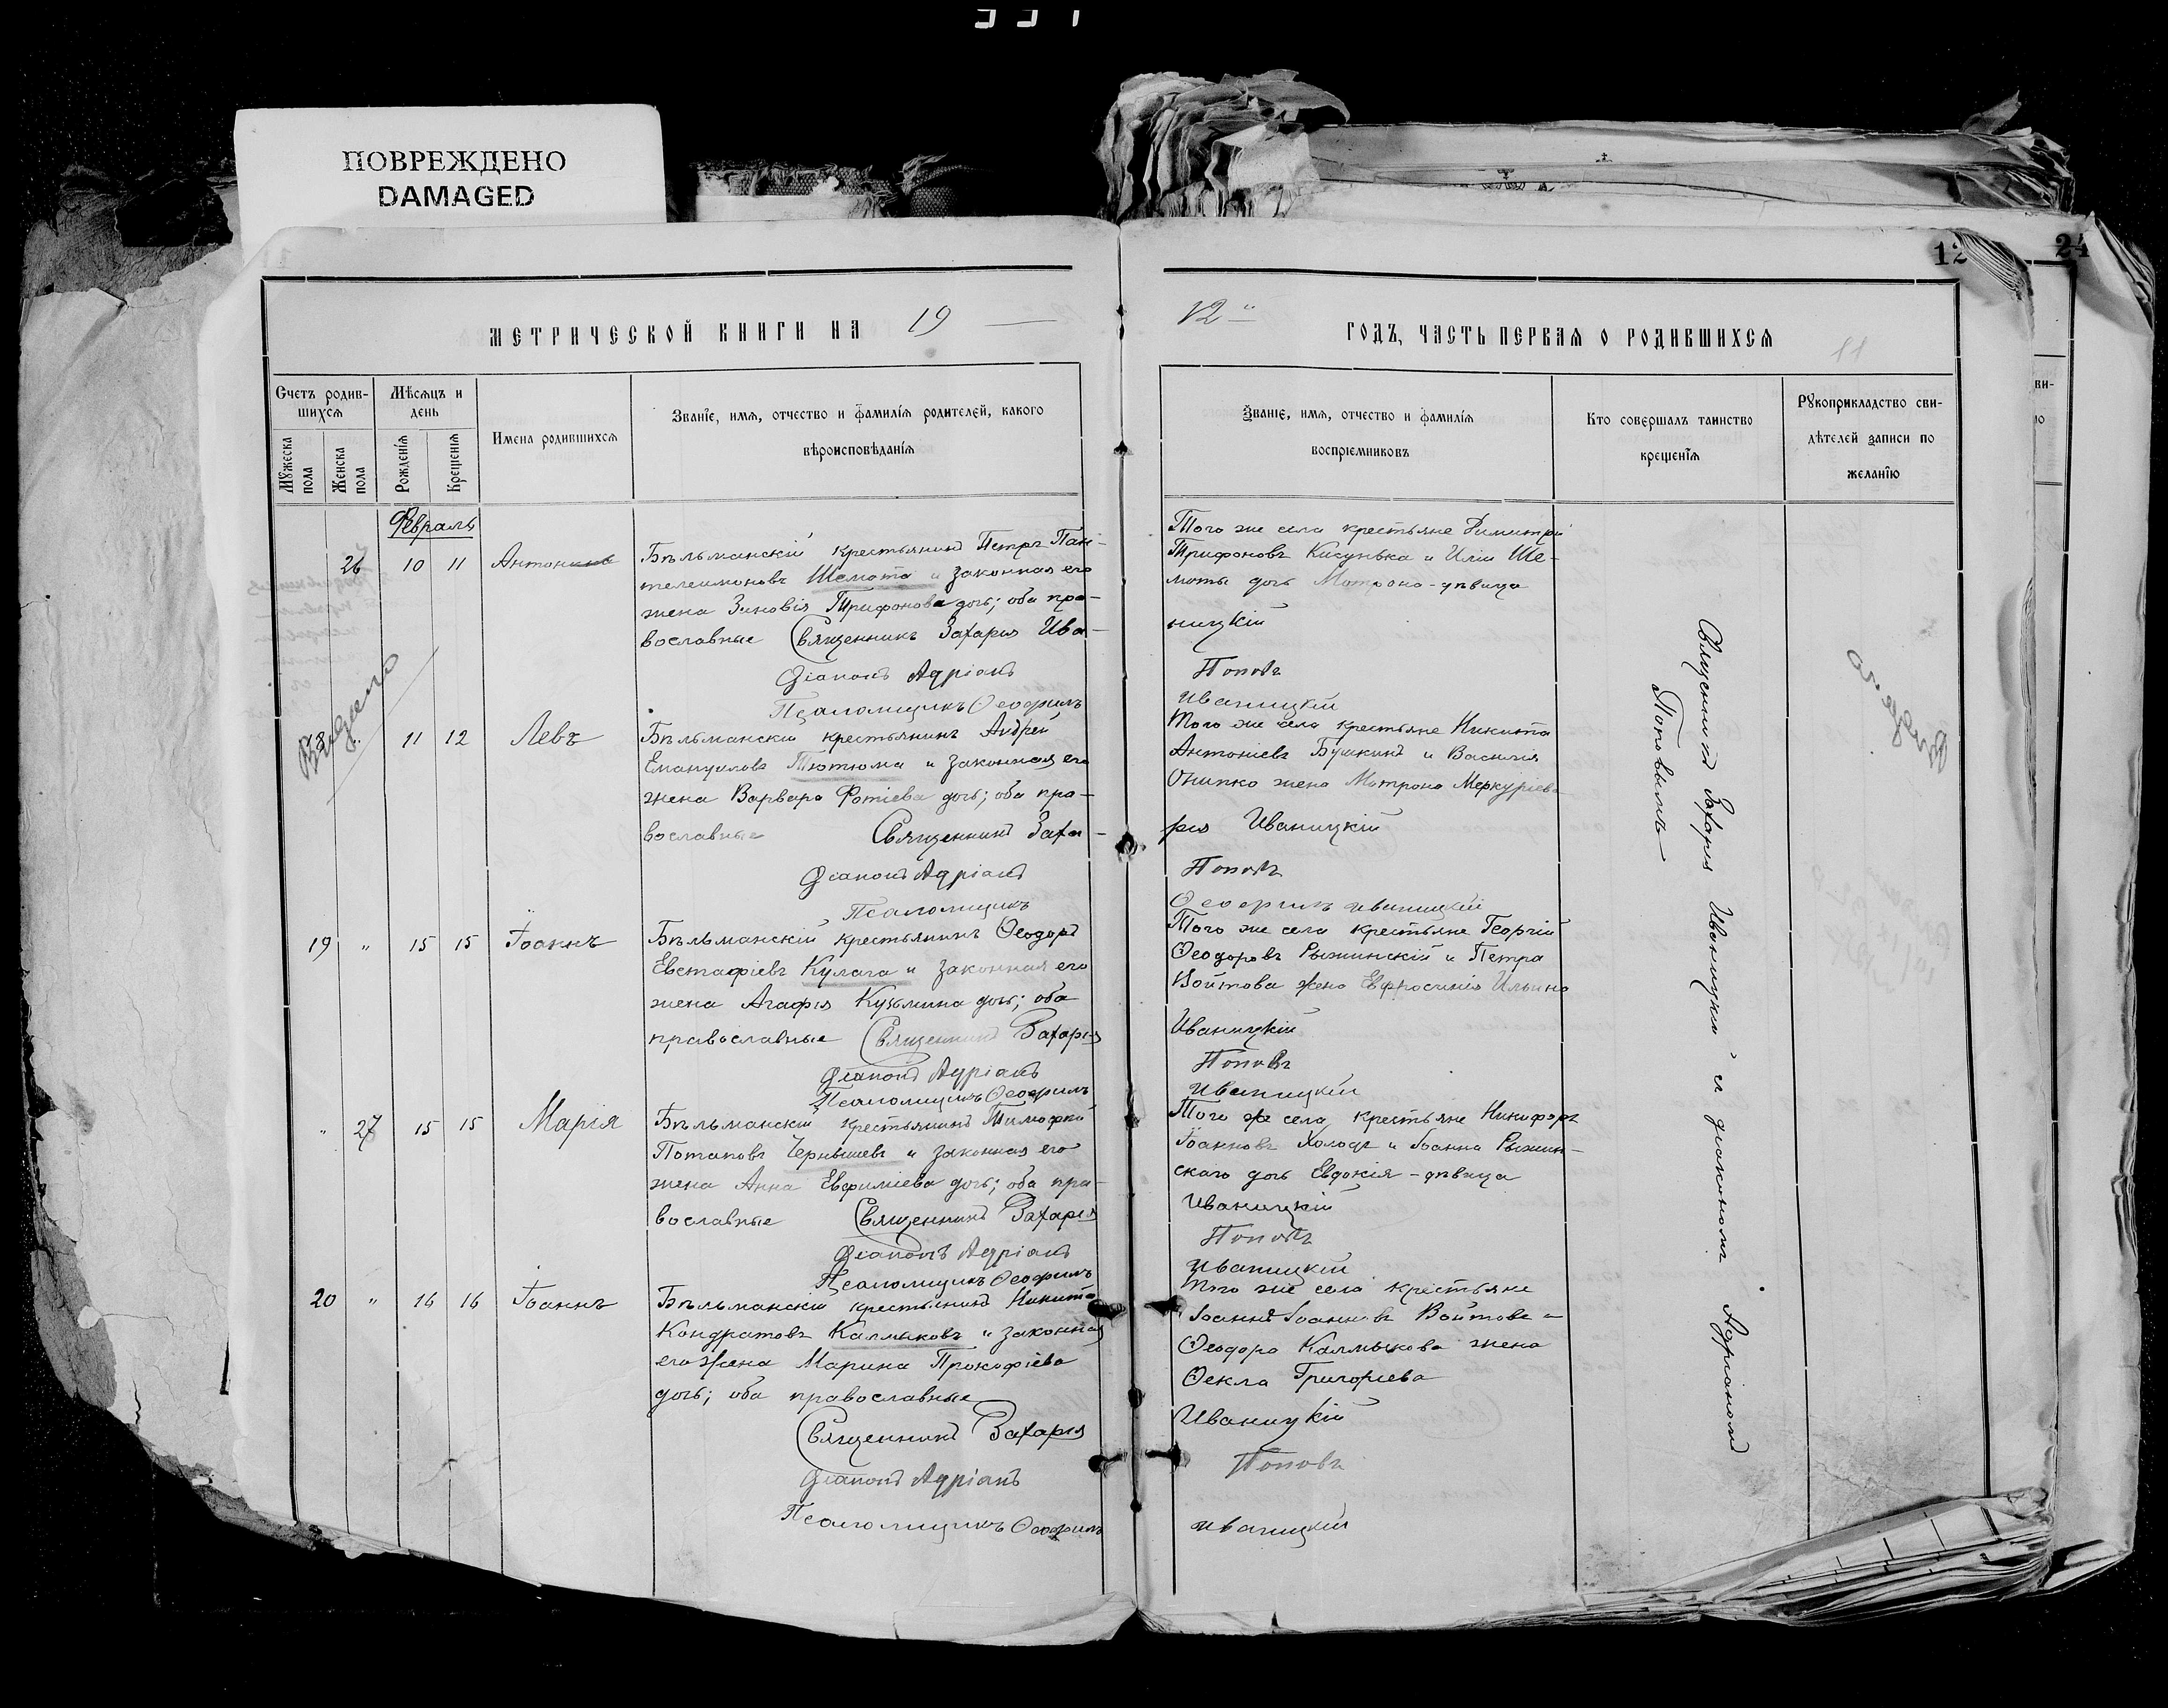 ПОВРЕЖДЕНО
DAMAGED
12
24
МЕТРИЧЕСКОЙ КНИГИ НА 19
12 ГОДЪ, ЧАСТЬ ПЕРВАЯ О РОДИВШИХСЯ
11
Счетъ родив-
шихся
Мужеска пола
Женска пола
Мѣсяцъ и
день
Рожденія
Крещенія
Имена родившихся
Званіе, имя, отчество и фамилія родителей, какого
вѣроисповѣданія
Званіе, имя, отчество и фамилія
воспріемниковъ
Кто совершалъ таинство
крещенія
Рукоприкладство сви-
дѣтелей записи по
желанію
Февраль
26 10 11
Бѣльманскій крестьянинъ Петръ Пан-
телеимоновъ Шемота и законная его
жена Зиновія Трифонова дочь; оба пра-
вославные Священникъ Захарія Ива-
Діаконъ Адріанъ
Псаломщикъ Ѳеофилъ
Того же села крестьяне Димитрій
Трифоновъ Кисунька и Иліи Ше-
моты дочь Матрона-дѣвица
ницкій
Поповъ
Иваницкій
Выдано
18 " 11 12 Левъ
Бѣльманскій крестьянинъ Андрей
Емануиловъ Тютюма и законная его
жена Варвара Фотіева дочь; оба пра-
вославные Священникъ Заха-
Діаконъ Адріанъ
Псаломщикъ
Того же села крестьяне Никита
Антоніевъ Бушкинъ и Василія
Онипко жена Матрона Меркуріева
рія Иваницкій
Поповъ
Ѳеофилъ Иваницкій
19 " 15 15 Іоаннъ
Бѣльманскій крестьянинъ Ѳеодоръ
Евстафіевъ Кулага и законная его
жена Агафія Кузьмина дочь; оба
православные Священникъ Захарія
Діаконъ Адріанъ
Псаломщикъ Ѳеофилъ
Того же села крестьяне Георгій
Ѳеодоровъ Рыжинскій и Петра
Войтова жена Евфросинія Ильина
Иваницкій
Поповъ
Иваницкій
" 27 15 15 Марія
Бѣльманскій крестьянинъ Тимофей
Потаповъ Чернышевъ и законная его
жена Анна Евфиміева дочь; оба пра-
вославные Священникъ Захарія
Діаконъ Адріанъ
Псаломщикъ Ѳеофилъ
Того же села крестьяне Никифоръ
Іоанновъ Холодъ и Іоанна Рыжин-
скаго дочь Евдокія-дѣвица
Иваницкій
Поповъ
Иваницкій
20 " 16 16 Іоаннъ
Бѣльманскій крестьянинъ Никита
Кондратовъ Калмыковъ и законная
его жена Марина Прокофіева
дочь; оба православные
Священникъ Захарія
Діаконъ Адріанъ
Псаломщикъ Ѳеофилъ
Того же села крестьяне
Іоаннъ Іоанновъ Войтовъ и
Ѳеодора Калмыкова жена
Ѳекла Григоріева
Иваницкій
Поповъ
Иваницкій
Священникъ Захарія Иваницкій и діакономъ Адріаномъ
Поповымъ